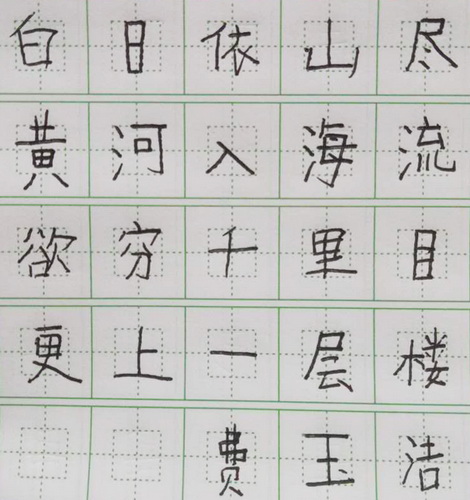 白日依山尽
黄河入海流
欲穷千里目
更上一层楼
费玉洁